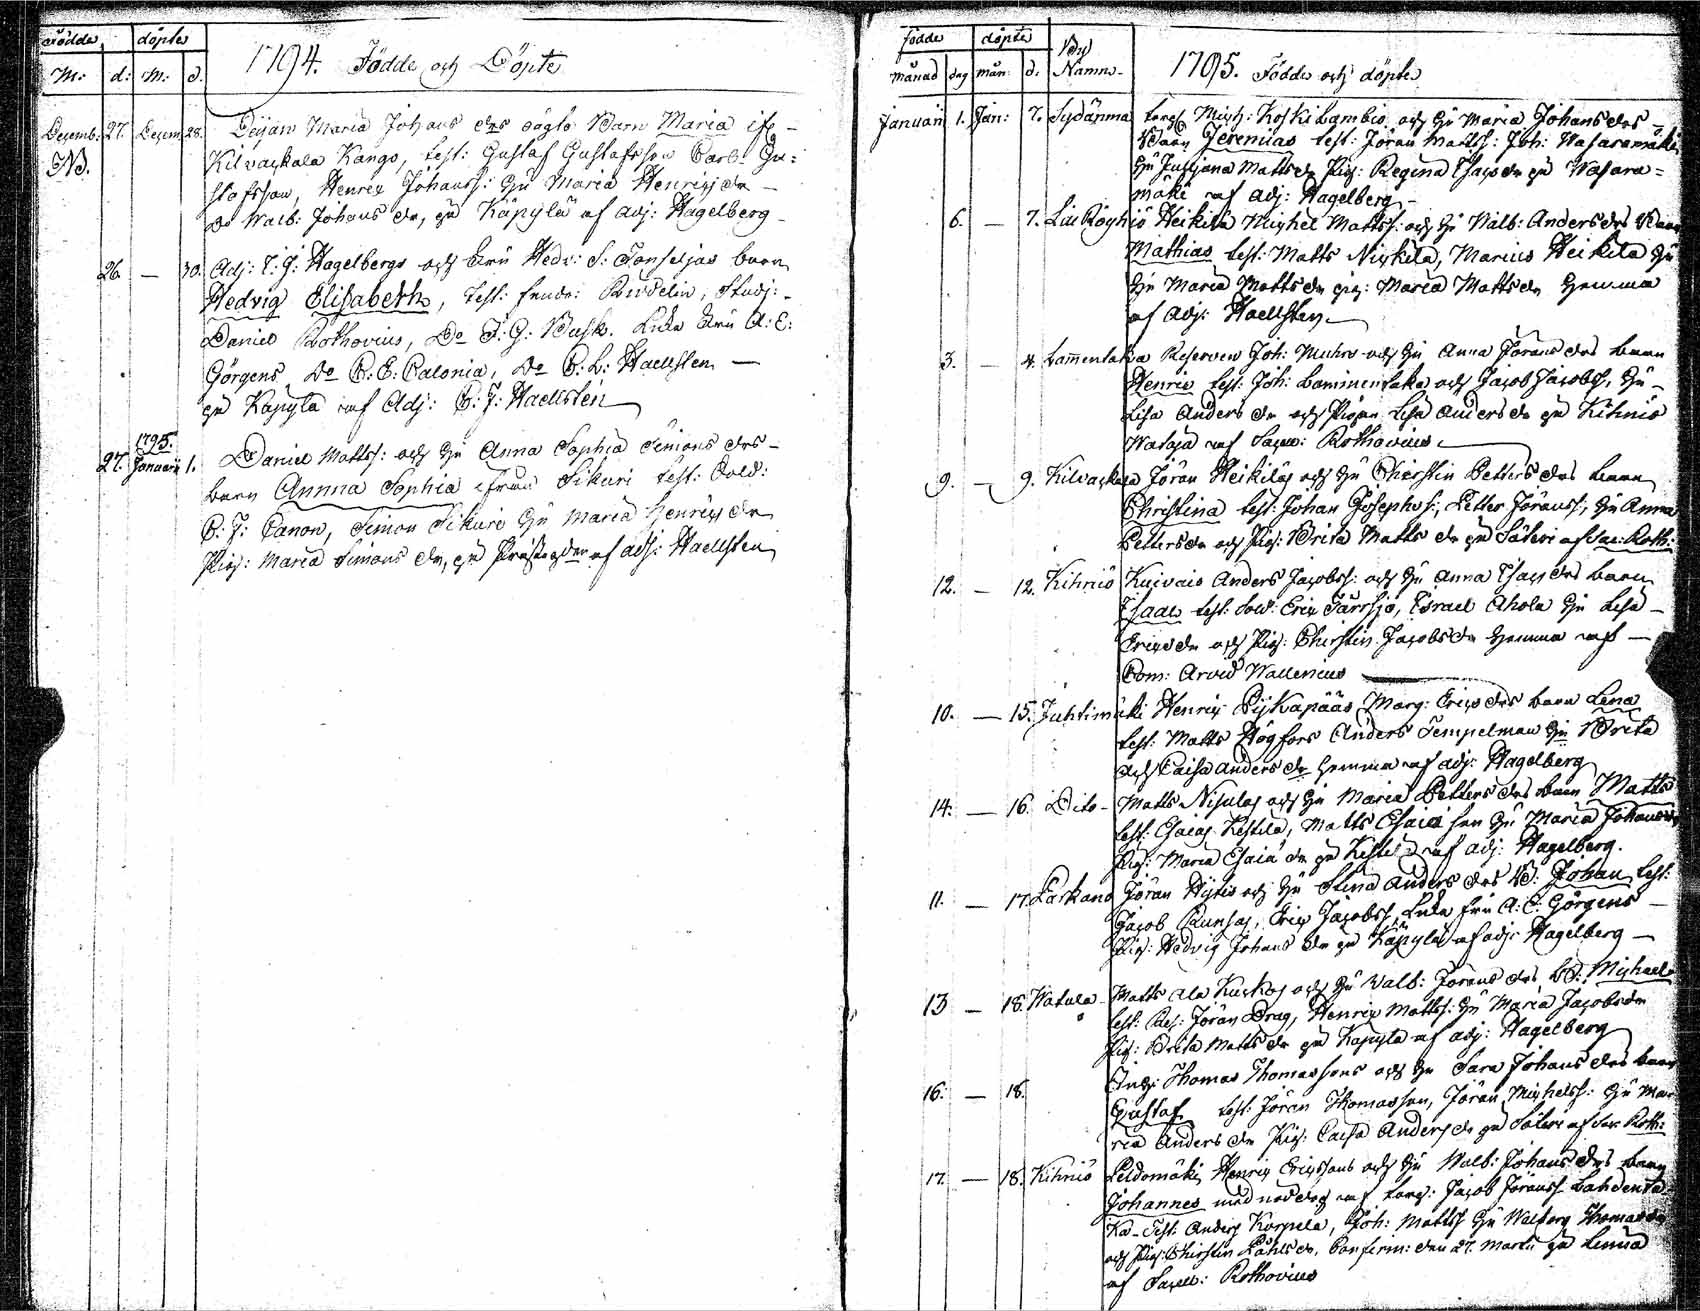 Födde döpte
M: d: M: d.
1794. Födde och Döpte
Decemb: 27. Decem. 28. Pijan Maria Johans drs oägta Barn Maria
NB. Kilvackala Kango, test: Gustaf Gustafsson Carl: Gu:
stafsson, Henric Johanss: Hu Maria Henricsdr
Do Walb: Johans dr, på Käpylä af Adj: Hagelberg
26 — 30. Adj: Hagelbergs och Fru Hedv: S: Fonseljas barn
Hedvig Elisabeth, test: Studj:
Daniel Rothovius, Do F. G. Busk. Enka Fru A: E:
Görgens, Do C: E: Calonia, Do C: L: Haellsten —
på Kapyla af Adj: C: J: Haellsten
1795.
27. Januarii 1. Daniel Matts: och Hu Anna Sophia Simons drs
barn Annna Sophia ifrån Sikuri test:
C: J: Canon, Simon Sikuri Hu Maria Henrics dr
Pig: Maria Simons dr, på af adj: Haellsten
födde döpte By
månad dag mån: d. Namn
1795. Födde och döpte
Januarii 1. Jan: 7. Sydänma Torp Mich: Koskilambio och Hu Maria Johans drs
Barn Jeremias test: Jöran Matts: Joh: Wasaramäki
Hu Justjana Matts dr Pig: Regina Isacs dr på Wasara=
mäki af Adj: Hagelberg
6. — 7. Heikilä Michel Matts: och Hu Walb: Anders drs Barn
Mathias test: Matts Niskila, Marius Heikila
Hu Maria Matts dr pig: Maria Matts dr hemma
af Adj: Haellsten
3. — 4. Lamentaka Reserven Joh: Muhrs och Hu Anna Jörans drs barn
Henric test: Joh: Laminentaka och Jacob Jacobs: Hu
Lisa Anders dr och Pigan Lisa Anders dr på Kihniö
Wataja af Sacell: Rothovius
9. — 9. Kilvackala Jöran Heikiläs och Hu Christin Petters drs barn
Christina test: Johan Josephss:, Petter Jöranss:, Hu Anna
Petters dr och Pig: Brita Matts dr på Säteri af Sac: Roth:
12. — 12. Kihniö Kuivais Anders Jacobs: och Hu Anna Isacs drs barn
Isaac test: Sold: Eric Färssjö, Israel Ahola Hu Lisa
Erics dr och Pig: Christin Jacobs dr hemma af
Com: Arvid Wallenius
10. — 15. Juhtimäki Henric Marg: Erics drs barn Lena
test: Matts Högfors Anders Tempelman Hu Brita
och Caisa Anders dr hemma af adj: Hagelberg
14. — 16. Dito Matts Nisulas och Hu Maria Petters drs barn Matts
test: Esaias Kestilä, Matts Esaiæ son Hu Maria Johans dr
Pig: Maria Esaiæ dr på Kestilä af adj: Hagelberg.
11. — 17. Parkano Jöran och Hu Stina Anders drs B: Johan test:
Jacob Eric Jacobs, Enka fru A: E: Görgens
Pig: Hedvig Johans dr på Käpylä af adj: Hagelberg
13 — 18. Watula Matts Ala Kuckos och Hu Walb: Jörans drs B: Michael
test: Res: Jöran Drag, Henric Matts: Hu Maria Jacobs dr
Pig: Brita Matts dr på Kapyla af adj: Hagelberg
16. — 18. Thomas Thomassons och Hu Sara Johans drs barn
Gustaf test: Jöran Thomasson, Jöran Michels: Hu Ma=
ria Anders dr Pig: Caisa Anders dr på Säteri af Sac Roth:
17. — 18. Kihniö Peldomäki Henric Ericssons och Hu Walb: Johans drs barn
Johannes med nöddop af Torp: Jacob Jöranss: Lahdenta
Ka Test: Anders Korpela, Joh: Matts Hu Walborg Thomas dr
och Pig: Christin Påhls dr, Confirm: den 27. Martii på Linna
af Sacell: Rothovius